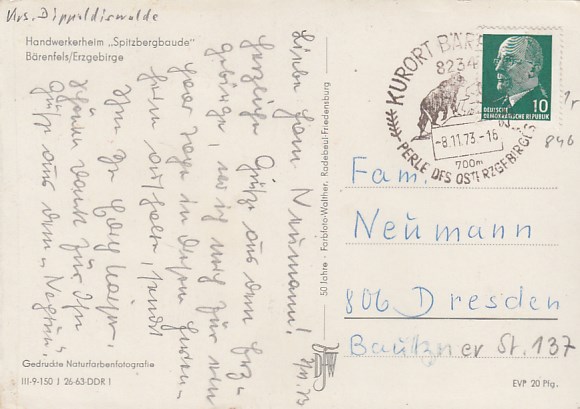 Krs. Dippoldiswalde
Handwerkerheim „Spitzbergbaude"
Bärenfels/Erzgebirge
Liebe Fam. Neumann!
8/11. 73
Herzliche Grüße aus dem Erz-
gebirge, wo ich mich für
paar Tage in diesem
heim aufhalte, sendet
Ihn.
Schönen Dank für Ihre
Grüße aus dem
Gedruckte Naturfarbenfotografie
III-9-150 J 26-63-DDR I
50 Jahre · Farbfoto-Walther, Radebeul-Friedensburg
KURORT BÄRE
8234
-8.11.73-16
700m
PERLE DES OSTERZGEBIRGES
DEUTSCHE
DEMOKRATISCHE REPUBLIK
10
84b
Fam.
Neümann
806 Dresden
Baützner St. 137
EVP 20 Pfg.